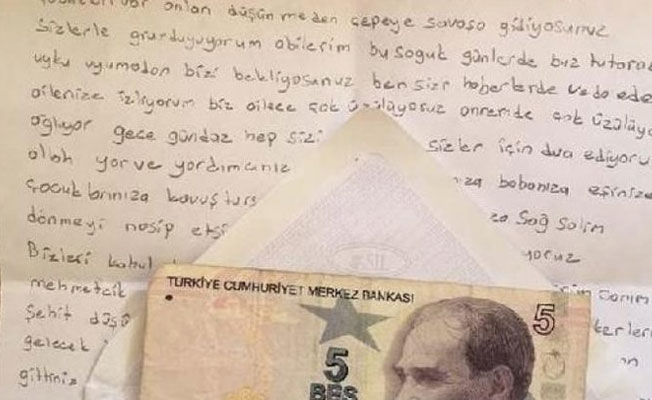 var onları düşünmeden cepeye savaşa gidiyosunuz
Sizlerle grurduyuyorum abilerim bu soguk günlerde buz tutarad
uyku uyumadan bizi bekliyosunuz ben sizi haberlerde veda ede
ailenize izliyorum biz ailece çok üzülüyosuz annemde çok üzülüyo
ağlıyor gece gündaz hep sizi sizler için dua ediyoru
allah yar ve yardımcınız babanıza eşinize
çocuklarınıza kavuştur Sağ Salim
dönmeyi nasip etsi
Bizleri kabul yoruz
mehmetcik canım
Şehit düşü kerleri
gelecek
gittiniz
TÜRKİYE CUMHURİYET MERKEZ BANKASI
5
5
BEŞ